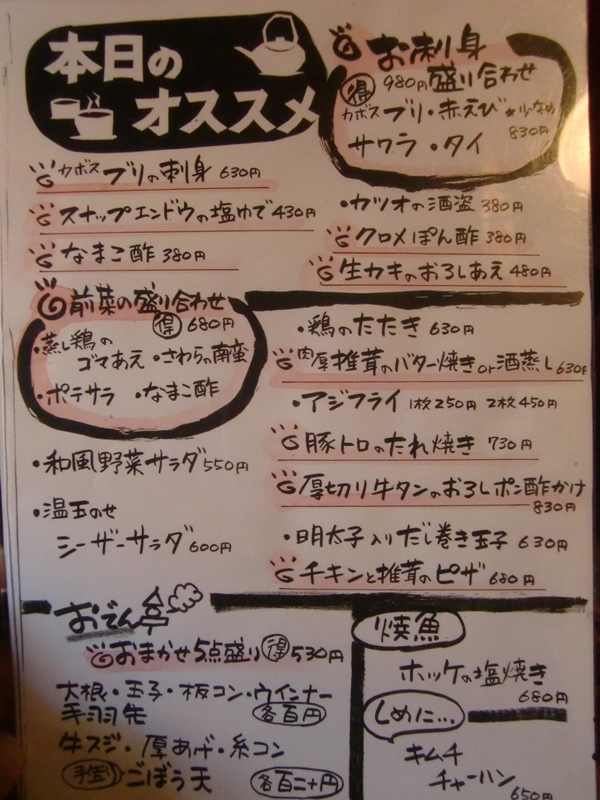 本日の
オススメ
お刺身
得 980円 盛り合わせ
カボスブリ・赤えび ★少なめ
830円
サワラ・タイ
カボスブリの刺身 630円
スナップエンドウの塩ゆで 430円
なまこ酢 380円
・カツオの酒盗 380円
クロメぽん酢 380円
生カキのおろしあえ 480円
前菜の盛り合わせ
得 680円
・蒸し鶏の
ゴマあえ ・さわらの南蛮
・ポテサラ ・なまこ酢
・和風野菜サラダ 550円
・温玉のせ
シーザーサラダ 600円
・鶏のたたき 630円
肉厚椎茸のバター焼きor酒蒸し 630円
・アジフライ 1枚250円 2枚450円
豚トロのたれ焼き 730円
厚切り牛タンのおろしポン酢かけ
830円
・明太子入りだし巻き玉子 630円
チキンと椎茸のピザ 680円
おでん亭
おまかせ5点盛り 得 530円
大根・玉子・板コン・ウインナー
手羽先 各百円
牛スジ・厚あげ・糸コン
手造り ごぼう天 各百二十円
焼魚
ホッケの塩焼き
680円
しめに…
キムチ
チャーハン
650円